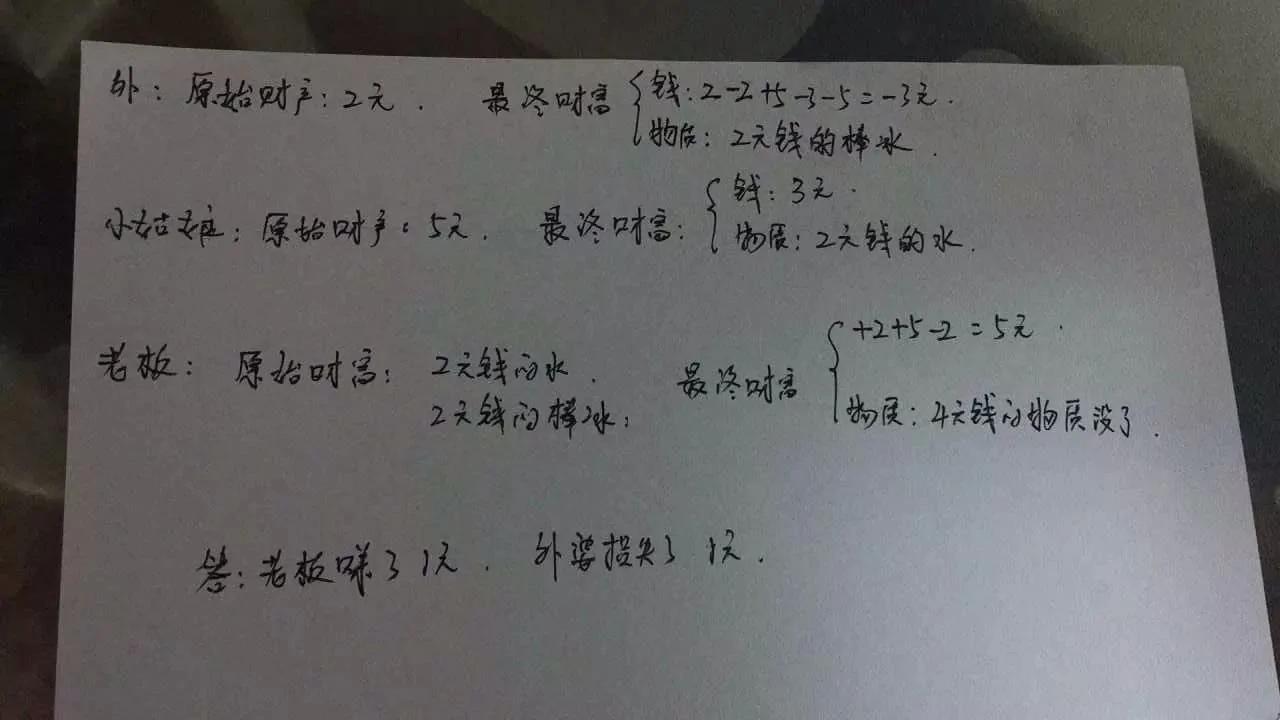 外：原始财产：2元． 最终财富 { 钱：2-2+5-3-5=-3元．
物质：2元钱的棒冰．
小姑娘：原始财产：5元． 最终财富： { 钱：3元．
物质：2元钱的水．
老板： 原始财富： 2元钱的水． 最终财富 { +2+5-2=5元．
2元钱的棒冰； 物质：4元钱的物质没了．
答：老板赚了1元． 外婆损失了1元．